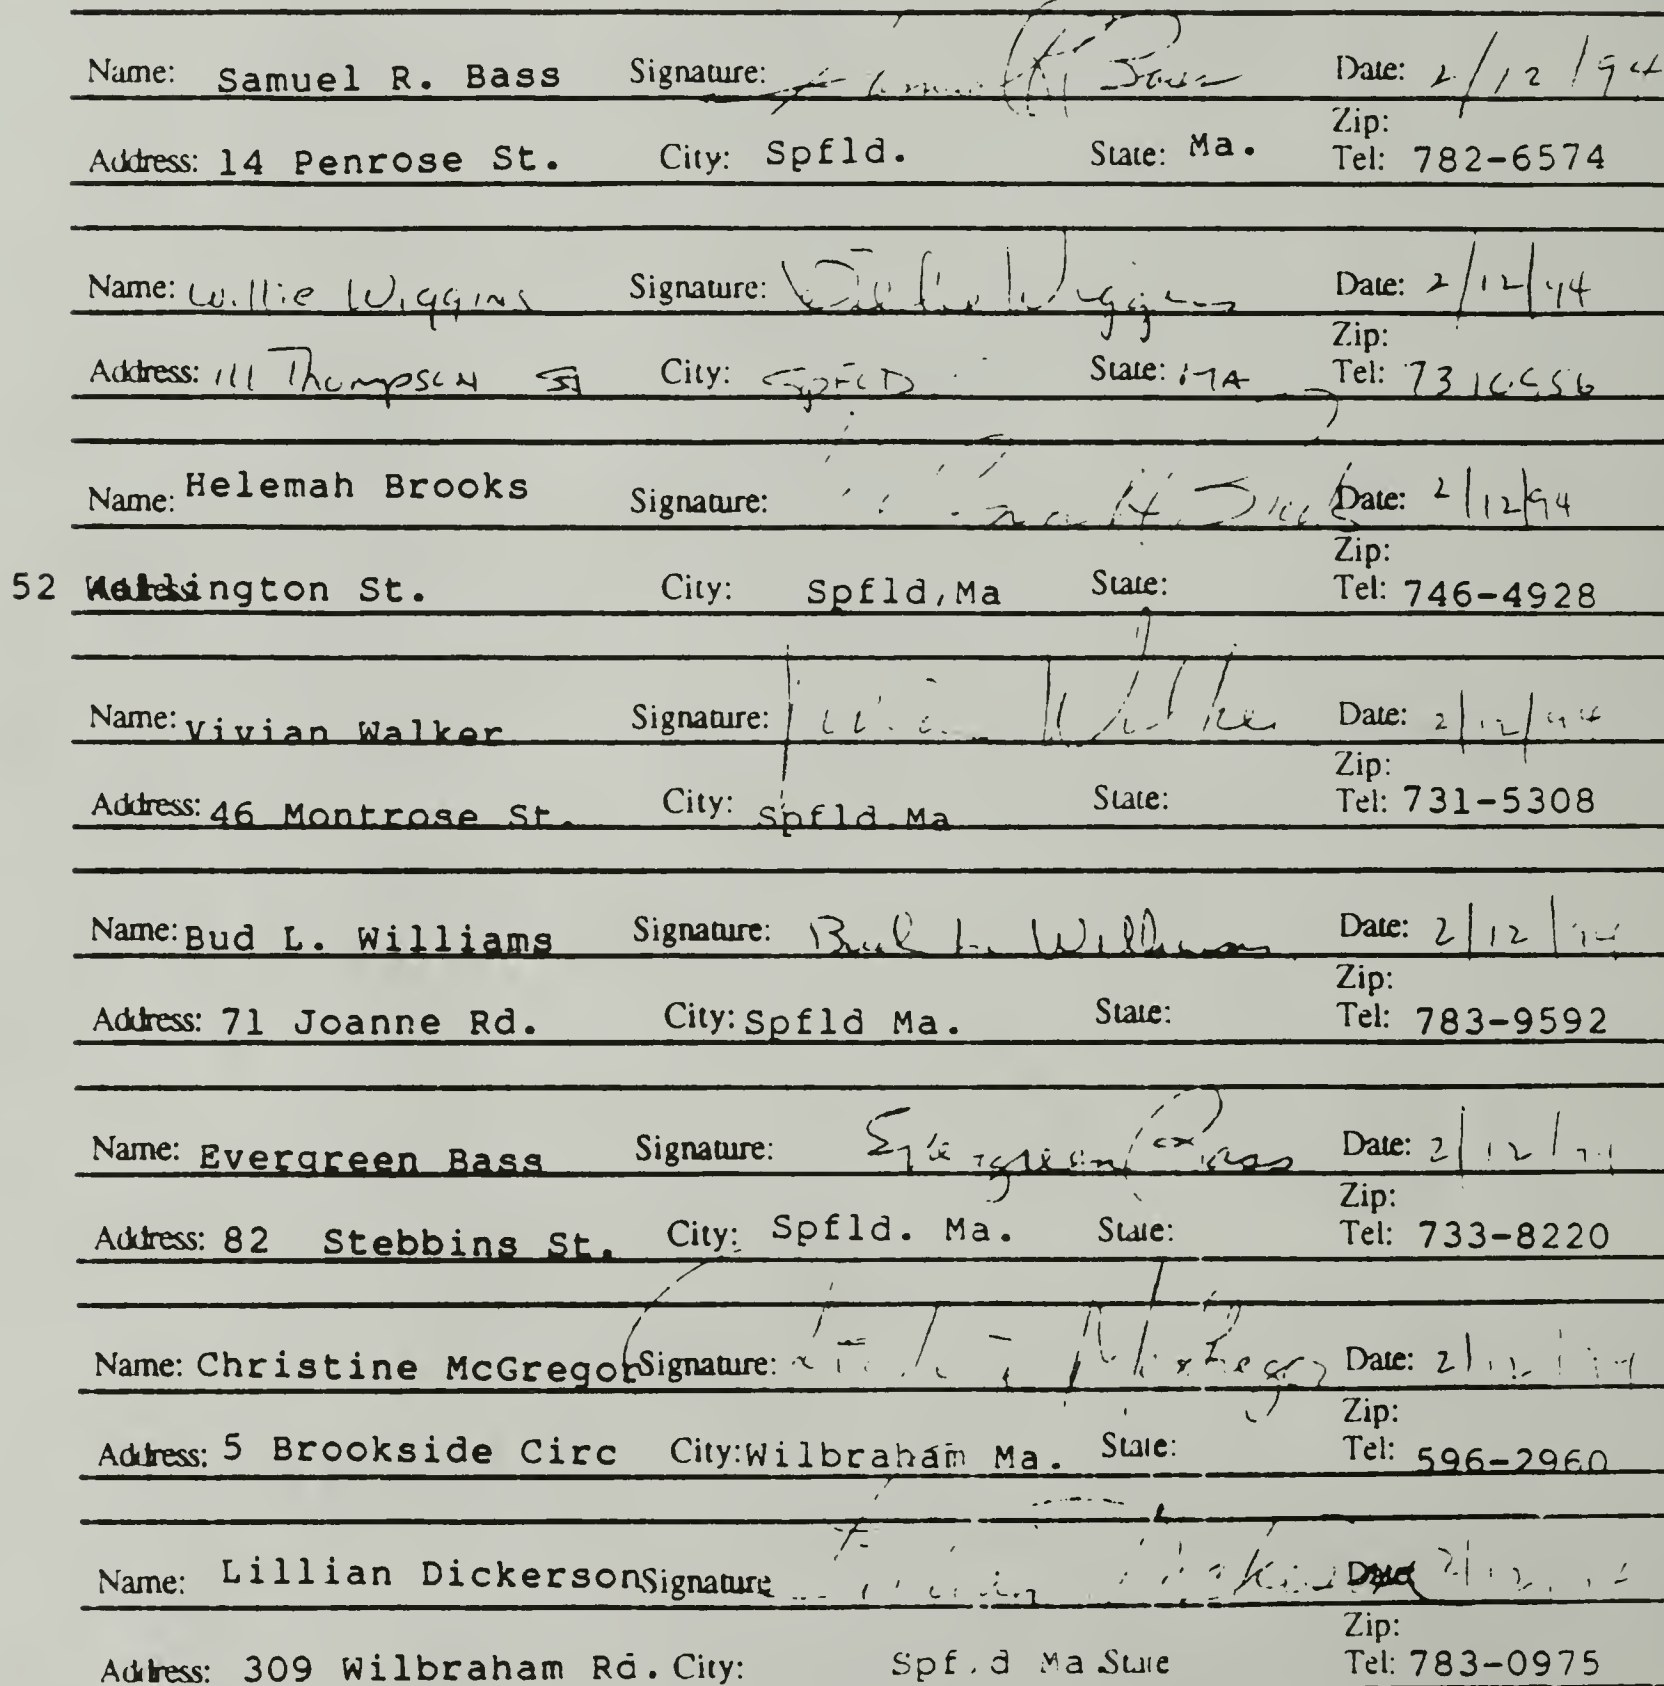 Name: Samuel R. Bass Signature: Samuel R. Bass Date: 2/12/94
Zip:
Address: 14 Penrose St. City: Spfld. State: Ma. Tel: 782-6574
Name: Willie Wiggins Signature: Willie Wiggins Date: 2/12/94
Zip:
Address: 111 Thompson St City: SPFLD State: MA Tel:
Name: Helemah Brooks Signature: Date: 2/12/94
Zip:
52 Wellington St. City: Spfld,Ma State: Tel: 746-4928
Name: Vivian Walker Signature: Vivian Walker Date: 2/12/94
Zip:
Address: 46 Montrose St. City: Spfld Ma State: Tel: 731-5308
Name: Bud L. Williams Signature: Bud L. Williams Date: 2/12/94
Zip:
Address: 71 Joanne Rd. City: Spfld Ma. State: Tel: 783-9592
Name: Evergreen Bass Signature: Evergreen Bass Date: 2/12/94
Zip:
Address: 82 Stebbins St. City: Spfld. Ma. State: Tel: 733-8220
Name: Christine McGregor Signature: Christine McGregor Date: 2/12/94
Zip:
Address: 5 Brookside Circ City: Wilbraham Ma. State: Tel: 596-2960
Name: Lillian Dickerson Signature Lillian Dickerson Date 2/12
Zip:
Address: 309 Wilbraham Rd. City: Spfld Ma State Tel: 783-0975